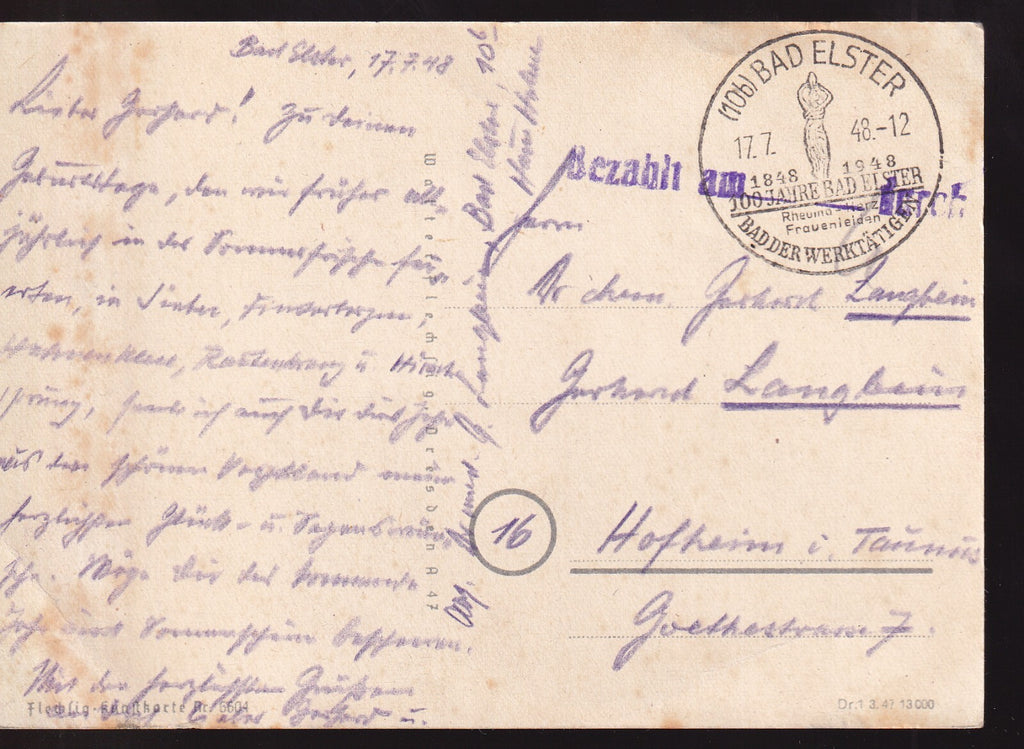 Bad Elster, 17.7.48
Lieber Gerhard! Zu Deinem
Geburtstage, den wir früher all-
jährlich in der Sommerfrische fei-
erten, in Sieber,
Hahnenklee, Kastenberg u. Hirsch-
sprung, sende ich auch Dir dies Jahr
aus dem schönen Vogtland meine
herzlichsten Glück- u. Segenswün-
sche. Möge Dir das kommende
Jahr Sonnenschein bescheren.
Mit den herzlichsten Grüßen
Gerhard u.
Flechsig-Kunstkarte Nr. 6604
Walter Flechsig Dresden A 47
Abs. Langbein, Bad Elster, 10b
Haus
(10b) BAD ELSTER
17.7. 48.-12
1848 1948
100 JAHRE BAD ELSTER
Rheuma Herz
Frauenleiden
BAD DER WERKTÄTIGEN
Bezahlt am
Herrn
Dr chem. Gerhard Langbein
Gerhard Langbein
16
Hofheim i. Taunus
Goethestrasse 7.
Dr.1 3. 47 13000